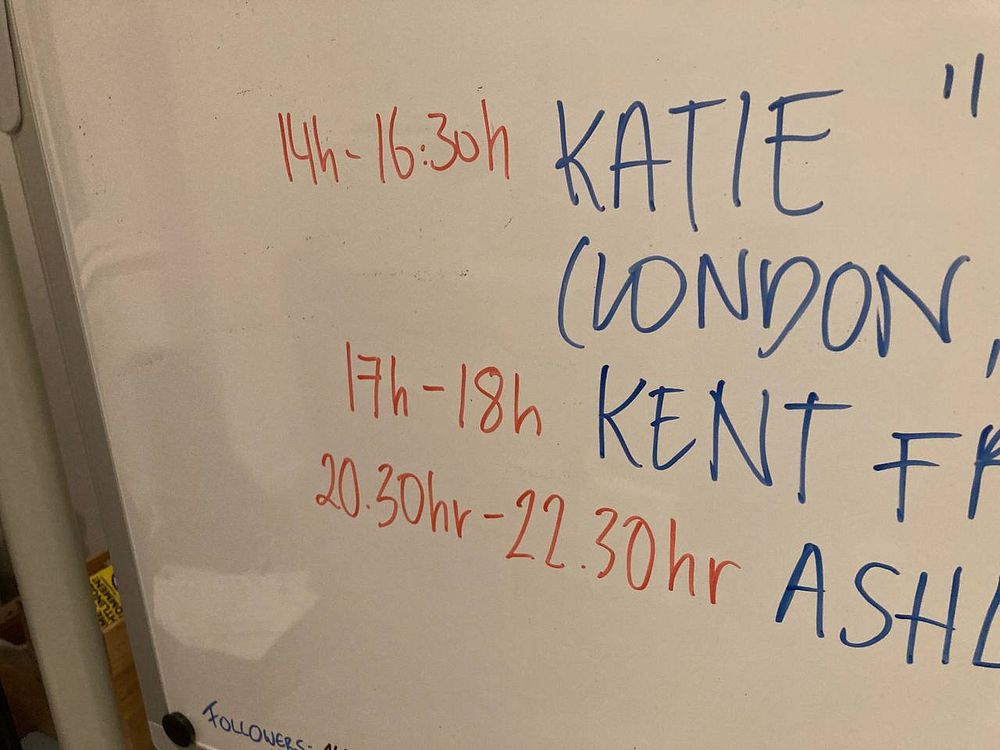 14h-16:30h KATIE "
(LONDON,
17h-18h KENT
20.30hr-22.30hr ASHL
FOLLOWERS-